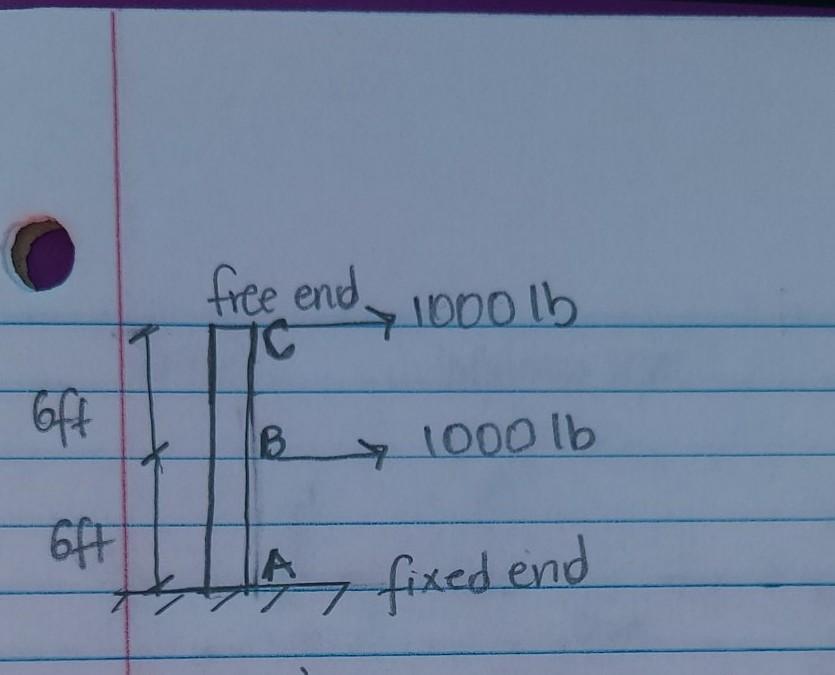 free end
1000 lb
C
6ft
B
1000 lb
6ft
A
fixed end